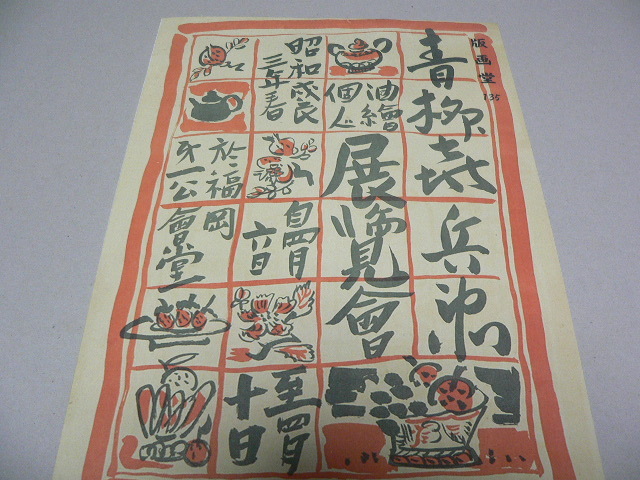 版画堂 135
青柳㐂兵衛
油繪
個人
展覧會
昭和戊辰
三年春
自四月
六日
至四月
十日
於福岡
㐧一公會堂